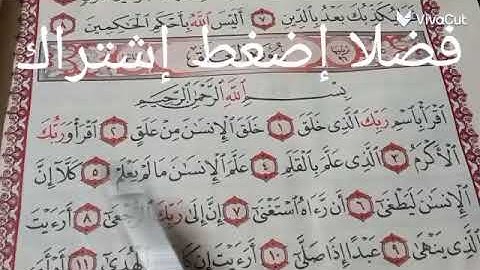 VivaCut
يكذبك بعد بالدين ٧ أليس الله بأحكم الحكمين
فضلا إضغط إشتراك
بسم الله الرحمن الرحيم
اقرأ باسم ربك الذى خلق ١ خلق الإنسن من علق ٢ اقرأ وربك
الأكرم ٣ الذى علم بالقلم ٤ علم الإنسن ما لم يعلم ٥ كلا إن
الإنسن ليطغى ٦ أن رءاه استغنى ٧ إن إلى ربك الرجعى ٨ أرءيت
الذى ينهى ٩ عبدا إذا صلى ١٠ أرءيت إن كا الهدى ١١ أو أمر